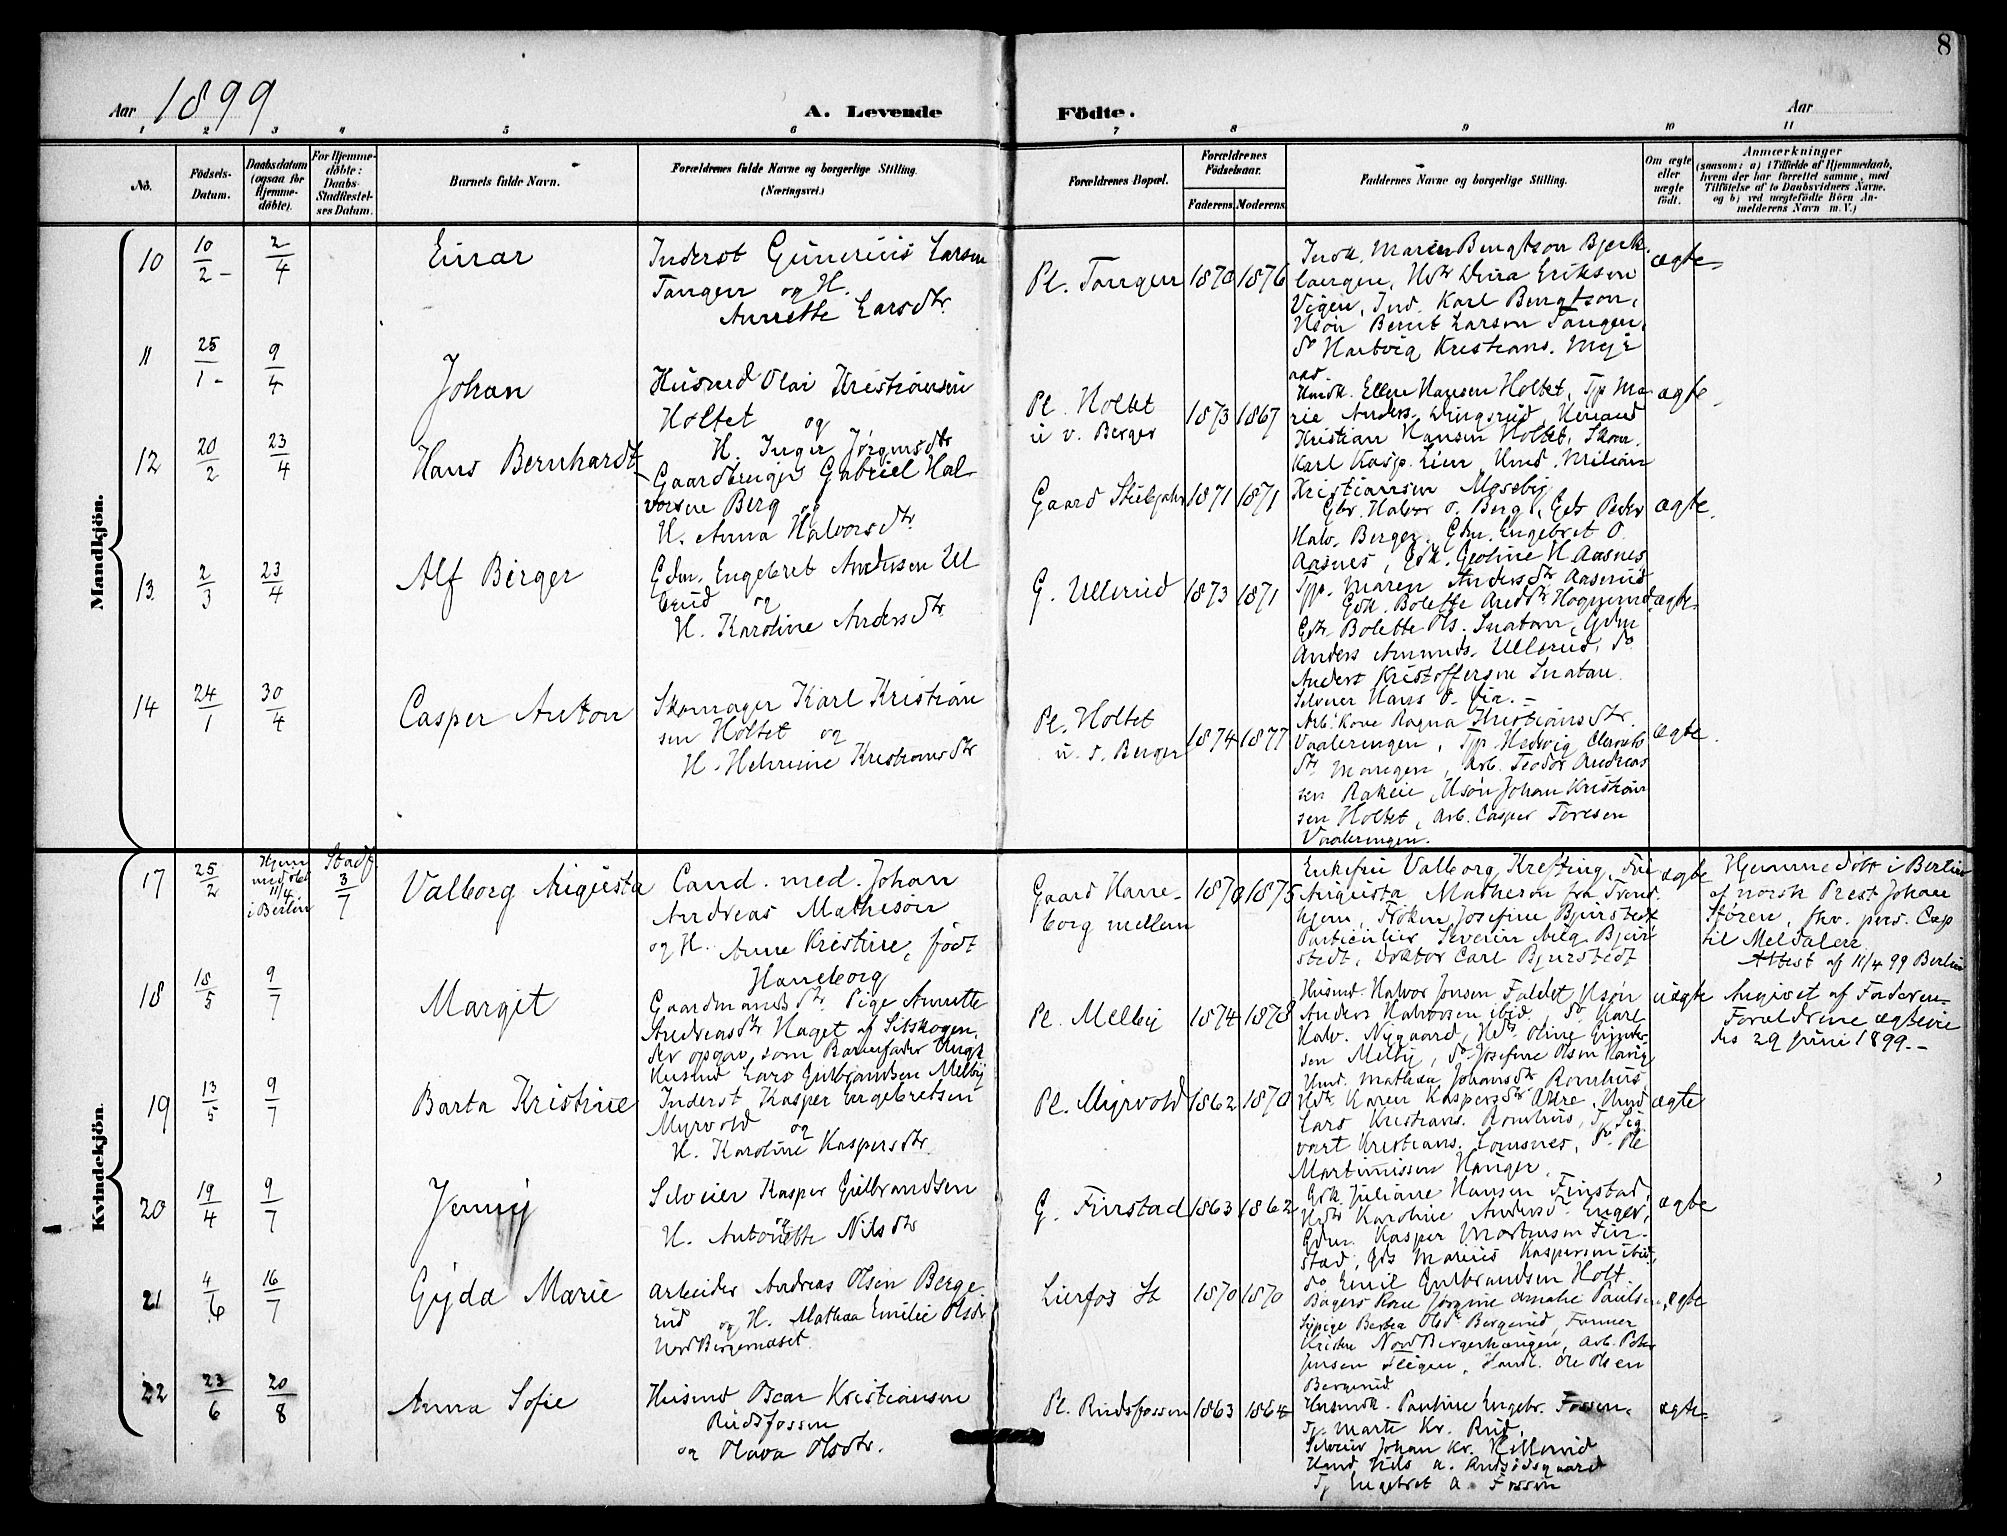 8
Aar 1899
A. Levende
Födte.
Aar
1 2 3 4 5 6 7 8 9 10 11
Nö.
Födsels-
Datum.
Daabsdatum
(ogsaa for
Hjemme-
döbte).
For Hjemme-
döbte:
Daabs-
Stadfæstel-
ses Datum.
Barnets fulde Navn.
Forældrenes fulde Navne og borgerlige Stilling.
(Næringsvei.)
Forældrenes Bopæl.
Forældrenes
Födselsaar.
Faderens. Moderens.
Faddernes Navne og borgerlige Stilling.
Om ægte
eller
uægte
födt.
Anmærkninger
(saasom: a) i Tilfælde af Hjemmedaab,
hvem der har forrettet samme, med
Tilföielse af to Daabsvidners Navne,
og b) ved uægtefödte Börn An-
melderens Navn m. V.)
Mandkjön.
10
10/2
2/4
Einar
Inderst Gunerius Larsen
Tangen og H.
Annette Larsdtr
Pl. Tangen
1870
1876
Indk. Maren Bengtson Bjerk
Vigen, Ind. Karl Bengtson,
Hsøn Bernt Larsen Tangen,
do Hartvig Kristians.
ægte
11
25/1
9/4
Johan
Husmd Olai Kristiansen
Holtet og
H. Inger Jørgensdtr
Pl. Holtet
u v. Berger
1873
1867
Hmdk. Ellen Hansen Holtet, Tjp Ma
rie Anders. Dingsrud,
Kristian Hansen Holtet, Skom.
Karl Kasp. Lien, Hmd.
Kristiansen Moseby
ægte
12
20/2
23/4
Hans Bernhardt
Gaardbruger Gabriel Hal
vorsen Berg og
H. Anna Halvorsdtr
Gaard
1871
1871
Gbr. Halvor O. Berg, Gds Peder
Halv. Berger, Gdm. Engebret O.
Aasnes, Gdk. Geoline H. Aasnes
ægte.
13
2/3
23/4
Alf Birger
Gdm. Engebret Andersen Ul
lerud og
H. Karoline Andersdtr
G. Ullerud
1873
1871
Tjp. Maren Andersdtr Aaserud
Gdk. Bolette
Gdtr Bolette Ols. Snatan, Gdm
Anders Amunds. Ullerud, do
Anders Kristoffersen Snatan
ægte
14
24/1
30/4
Casper Anton
Skomager Karl Kristian
sen Holtet og
H. Helmine Kristiansdtr
Pl. Holtet
u. s. Berger
1874
1877
Selveier Hans O.
Arb. Kone Ragna Kristiansdtr.
Vaaleringen, Tjp. Hedvig
dtr. Mangen, Arb. Teodor Andreas
sen Rakeie, Hsøn Johan Kristian
sen Holtet, Arb. Casper Toresen
Vaaleringen.
ægte.
Kvindekjön.
17
25/2
Hjem
medøbt
11/4
i Berlin
Stadf
3/7
Valborg Augusta
Cand. med. Johan
Andreas Matheson
og H. Anne Kristine, født
Haneborg
Gaard Hane-
borg mellem
1870
1875
Enkefru Valborg Krefting, Frk
Augusta Matheson fra Trond
hjem, Frøken Josefine Bjurstedt
Particulier Severin Aug. Bjur
stedt, Doktor Carl Bjurstedt
ægte
Hjemmedøbt i Berlin
af norsk Prest Johan
Støren, fhv. pers. Cap
til Meldalen
Attest af 11/4 99 Berlin
18
18/5
9/7
Margit
Gaardmandsdtr. Pige Annette
Andreasdtr Haget af Sitskogen,
der opgav som Barnefader Ungk
Husmd Lars Gulbrandsen Melby
Pl. Melby
1874
1878
Husmd. Halvor Jensen Faldet, Hsøn
Anders Halvorsen ibid. do Karl
Halv. Nygaard, Hdtr. Oline
sen Melby, do Josefine Olsen
uægte
Angivet af Faderen.
Forældrene ægtevie
des 29 juni 1899.
19
13/5
9/7
Barta Kristine
Inderst Kasper Engebretsen
Myrvold og
H. Karoline Kaspersdtr.
Pl. Myrvold
1862
1870
Hmd. Mathea Johansdtr Romhus,
Hdtr. Karen Kaspersdtr Ødre, Hmd
Lars Kristians. Romhus, T. Sig
vart Kristians. Lomsnes, do. Ole
Martinussen Hauger.
ægte
20
19/4
9/7
Jenny
Selveier Kasper Gulbrandsen
og
H. Antonette Nilsdtr
G. Finstad
1863
1862
Gdk. Juliane Hansen Finstad,
Hdtr Karoline Anders. Enger,
Gdm. Kasper Mortensen Fin-
stad, Gds Marius Kaspersen ibid,
do Emil Gulbrandsen Holt
ægte
21
4/6
16/7
Gyda Marie
Arbeider Andreas Olsen Berge
rud og H. Mathea Emilie Olsdtr
Nord Bergerneset.
Lierfos St
1870
1870
Bagers Kone Jørgine Amalie Paulsen,
Sypige Berthea Olsdtr Bergerud, Former
Kristen Nord Bergerhaugen, Arb. Peder
Jensen Heigen, Handl. Ole Olsen
Bergerud
ægte
22
23/6
20/8
Anna Sofie
Husmd Oscar Kristiansen
Rudsfossen
og Olava Olsdtr.
Pl. Rudsfossen
1863
1864
Husmdk. Pauline Engebr. Fossen.
Tj. Marte Kr. Rud.
Selveier Johan Kr. Kollerud
Hmd Nils A. Rudsødegaard
Tj Engebret A. Fossen
ægte